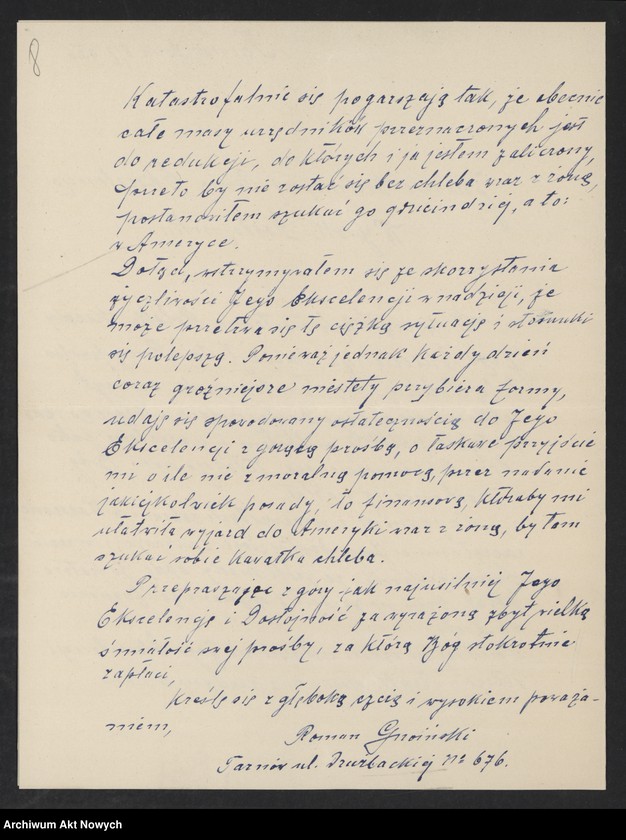 8
Katastrofalnie się pogarszają tak, że obecnie
całe masy urzędników przeznaczonych jest
do redukcji, do których i ja jestem zaliczony,
przeto by nie zostać się bez chleba wraz z żoną,
postanowiłem szukać go gdzieindziej, a to:
w Ameryce.
Dotąd, wstrzymywałem się ze skorzystania
życzliwości Jego Ekscelencji w nadzieji, że
może przetrwa się tę ciężką sytuację i stosunki
się polepszą. Ponieważ jednak każdy dzień
coraz groźniejsze niestety przybiera formy,
udaję się spowodowany ostatecznością do Jego
Ekscelencji z gorącą prośbą, o łaskawe przyjście
mi o ile nie z moralną pomocą, przez nadanie
jakiejkolwiek posady, to finansową, któraby mi
ułatwiła wyjazd do Ameryki wraz z żoną, by tam
szukać sobie kawałka chleba.
Przepraszając z góry jak najusilniej Jego
Ekscelencję i Dostojność za wyrażoną zbyt wielką
śmiałość swej prośby, za którą Bóg stokrotnie
zapłaci,
Kreślę się z głęboką czcią i wysokiem poważa-
niem,
Roman Gnoiński
Tarnów ul. Drużbackiej № 676.
Archiwum Akt Nowych